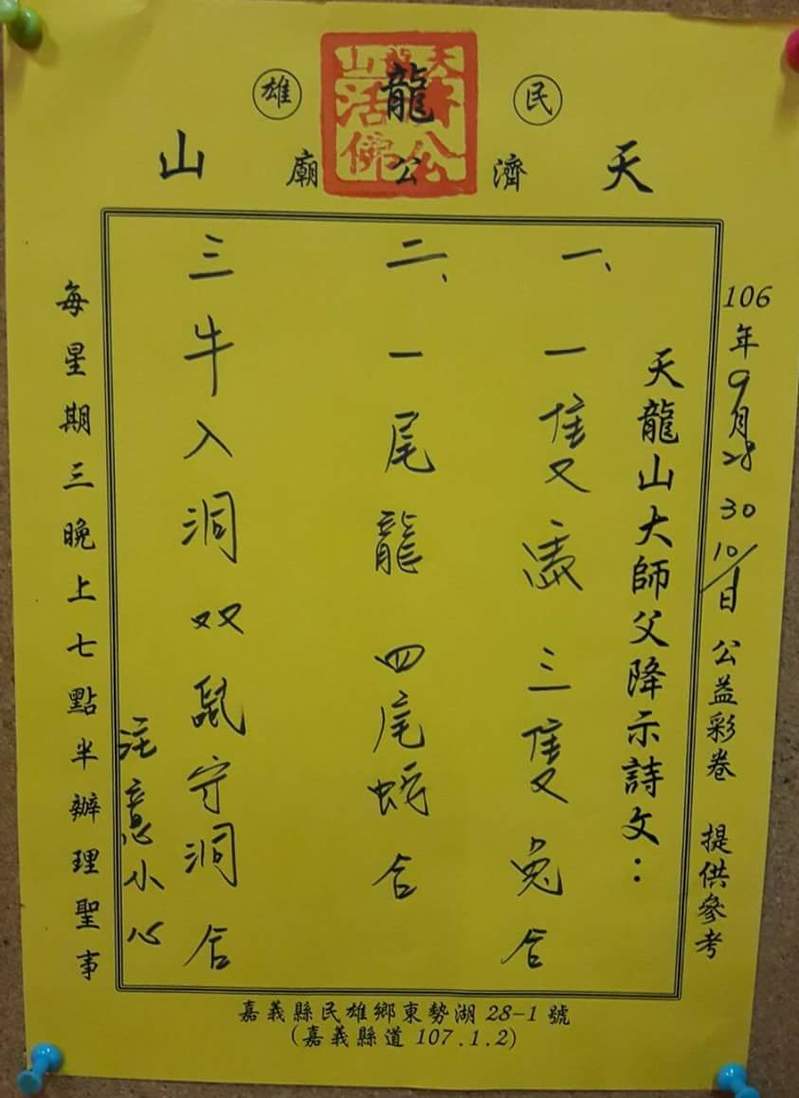 民雄
天龍山
濟公廟
天龍山濟公活佛
106年9月28 30 10/1日 公益彩卷 提供參考
天龍山大師父降示詩文：
一、一隻虎三隻兔合
二、一尾龍四尾蛇合
三牛入洞双鼠守洞合
注意小心
每星期三晚上七點半辦理聖事
嘉義縣民雄鄉東勢湖28-1號
(嘉義縣道107.1.2)